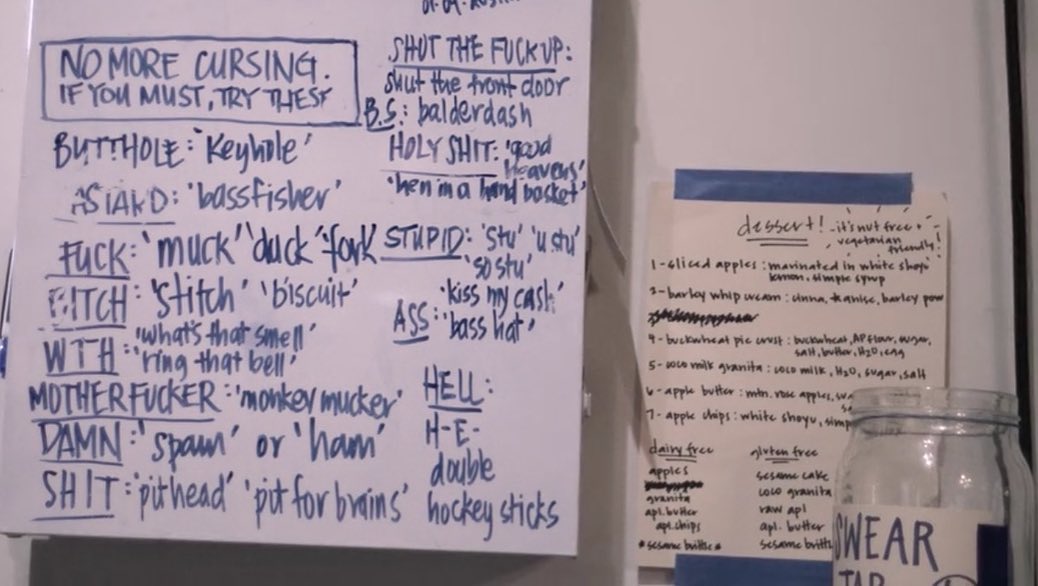 NO MORE CURSING.
IF YOU MUST, TRY THESE
BUTTHOLE: 'Keyhole'
'bassfisher'
FUCK: 'muck' 'duck' 'fork'
BITCH: 'stitch' 'biscuit'
'what's that smell'
WTH: 'ring that bell'
MOTHERFUCKER: 'monkey mucker'
DAMN: 'spam' or 'ham'
SHIT: 'pit head' 'pit for brains'
SHUT THE FUCK UP:
shut the front door
B.S.: balderdash
HOLY SHIT: 'good
Heavens'
'hen in a hand basket'
STUPID: 'stu' 'u stu'
'so stu'
'kiss my cash'
ASS: 'bass hat'
HELL:
H-E-
double
hockey sticks
dessert! - it's nut free +
vegetarian
friendly!
1 - sliced apples : marinated in white shoyu
lemon, simple syrup
2 - barley whip cream : cinna, barley pow
4 - buckwheat pie crust : buckwheat, AP flour, sugar,
salt, butter, H2O, egg
5 - coco milk granita : coco milk, H2O, sugar, salt
6 - apple butter : mtn. rose apples,
7 - apple chips : white shoyu, simp
dairy free
apples
granita
apl. butter
apl. chips
*sesame brittle*
gluten free
sesame cake
coco granita
raw apl
apl. butter
sesame britt
SWEAR
JAR